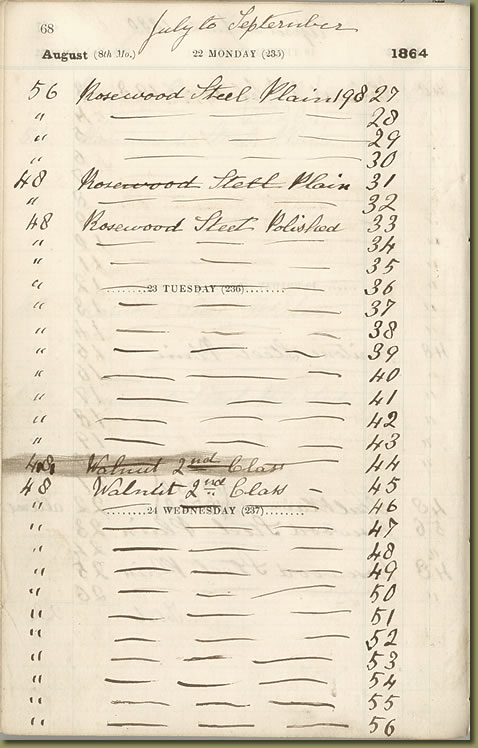 68 July to September
August (8th Mo.) 22 MONDAY (235) 1864
56 Rosewood Steel Plain 19827
" — — — 28
" — — — 29
" — — — 30
48 Rosewood Steel Plain 31
" — — — 32
48 Rosewood Steel Polished 33
" — — — 34
" — — — 35
" ........23 TUESDAY (236)........ 36
" — — — 37
" — — — 38
" — — — 39
" — — — 40
" — — — 41
" — — — 42
" — — — 43
48 Walnut 2nd Class 44
48 Walnut 2nd Class — 45
" ........24 WEDNESDAY (237)........ 46
" — — — 47
" — — — 48
" — — — 49
" — — — 50
" — — — 51
" — — — 52
" — — — 53
" — — — 54
" — — — 55
" — — — 56